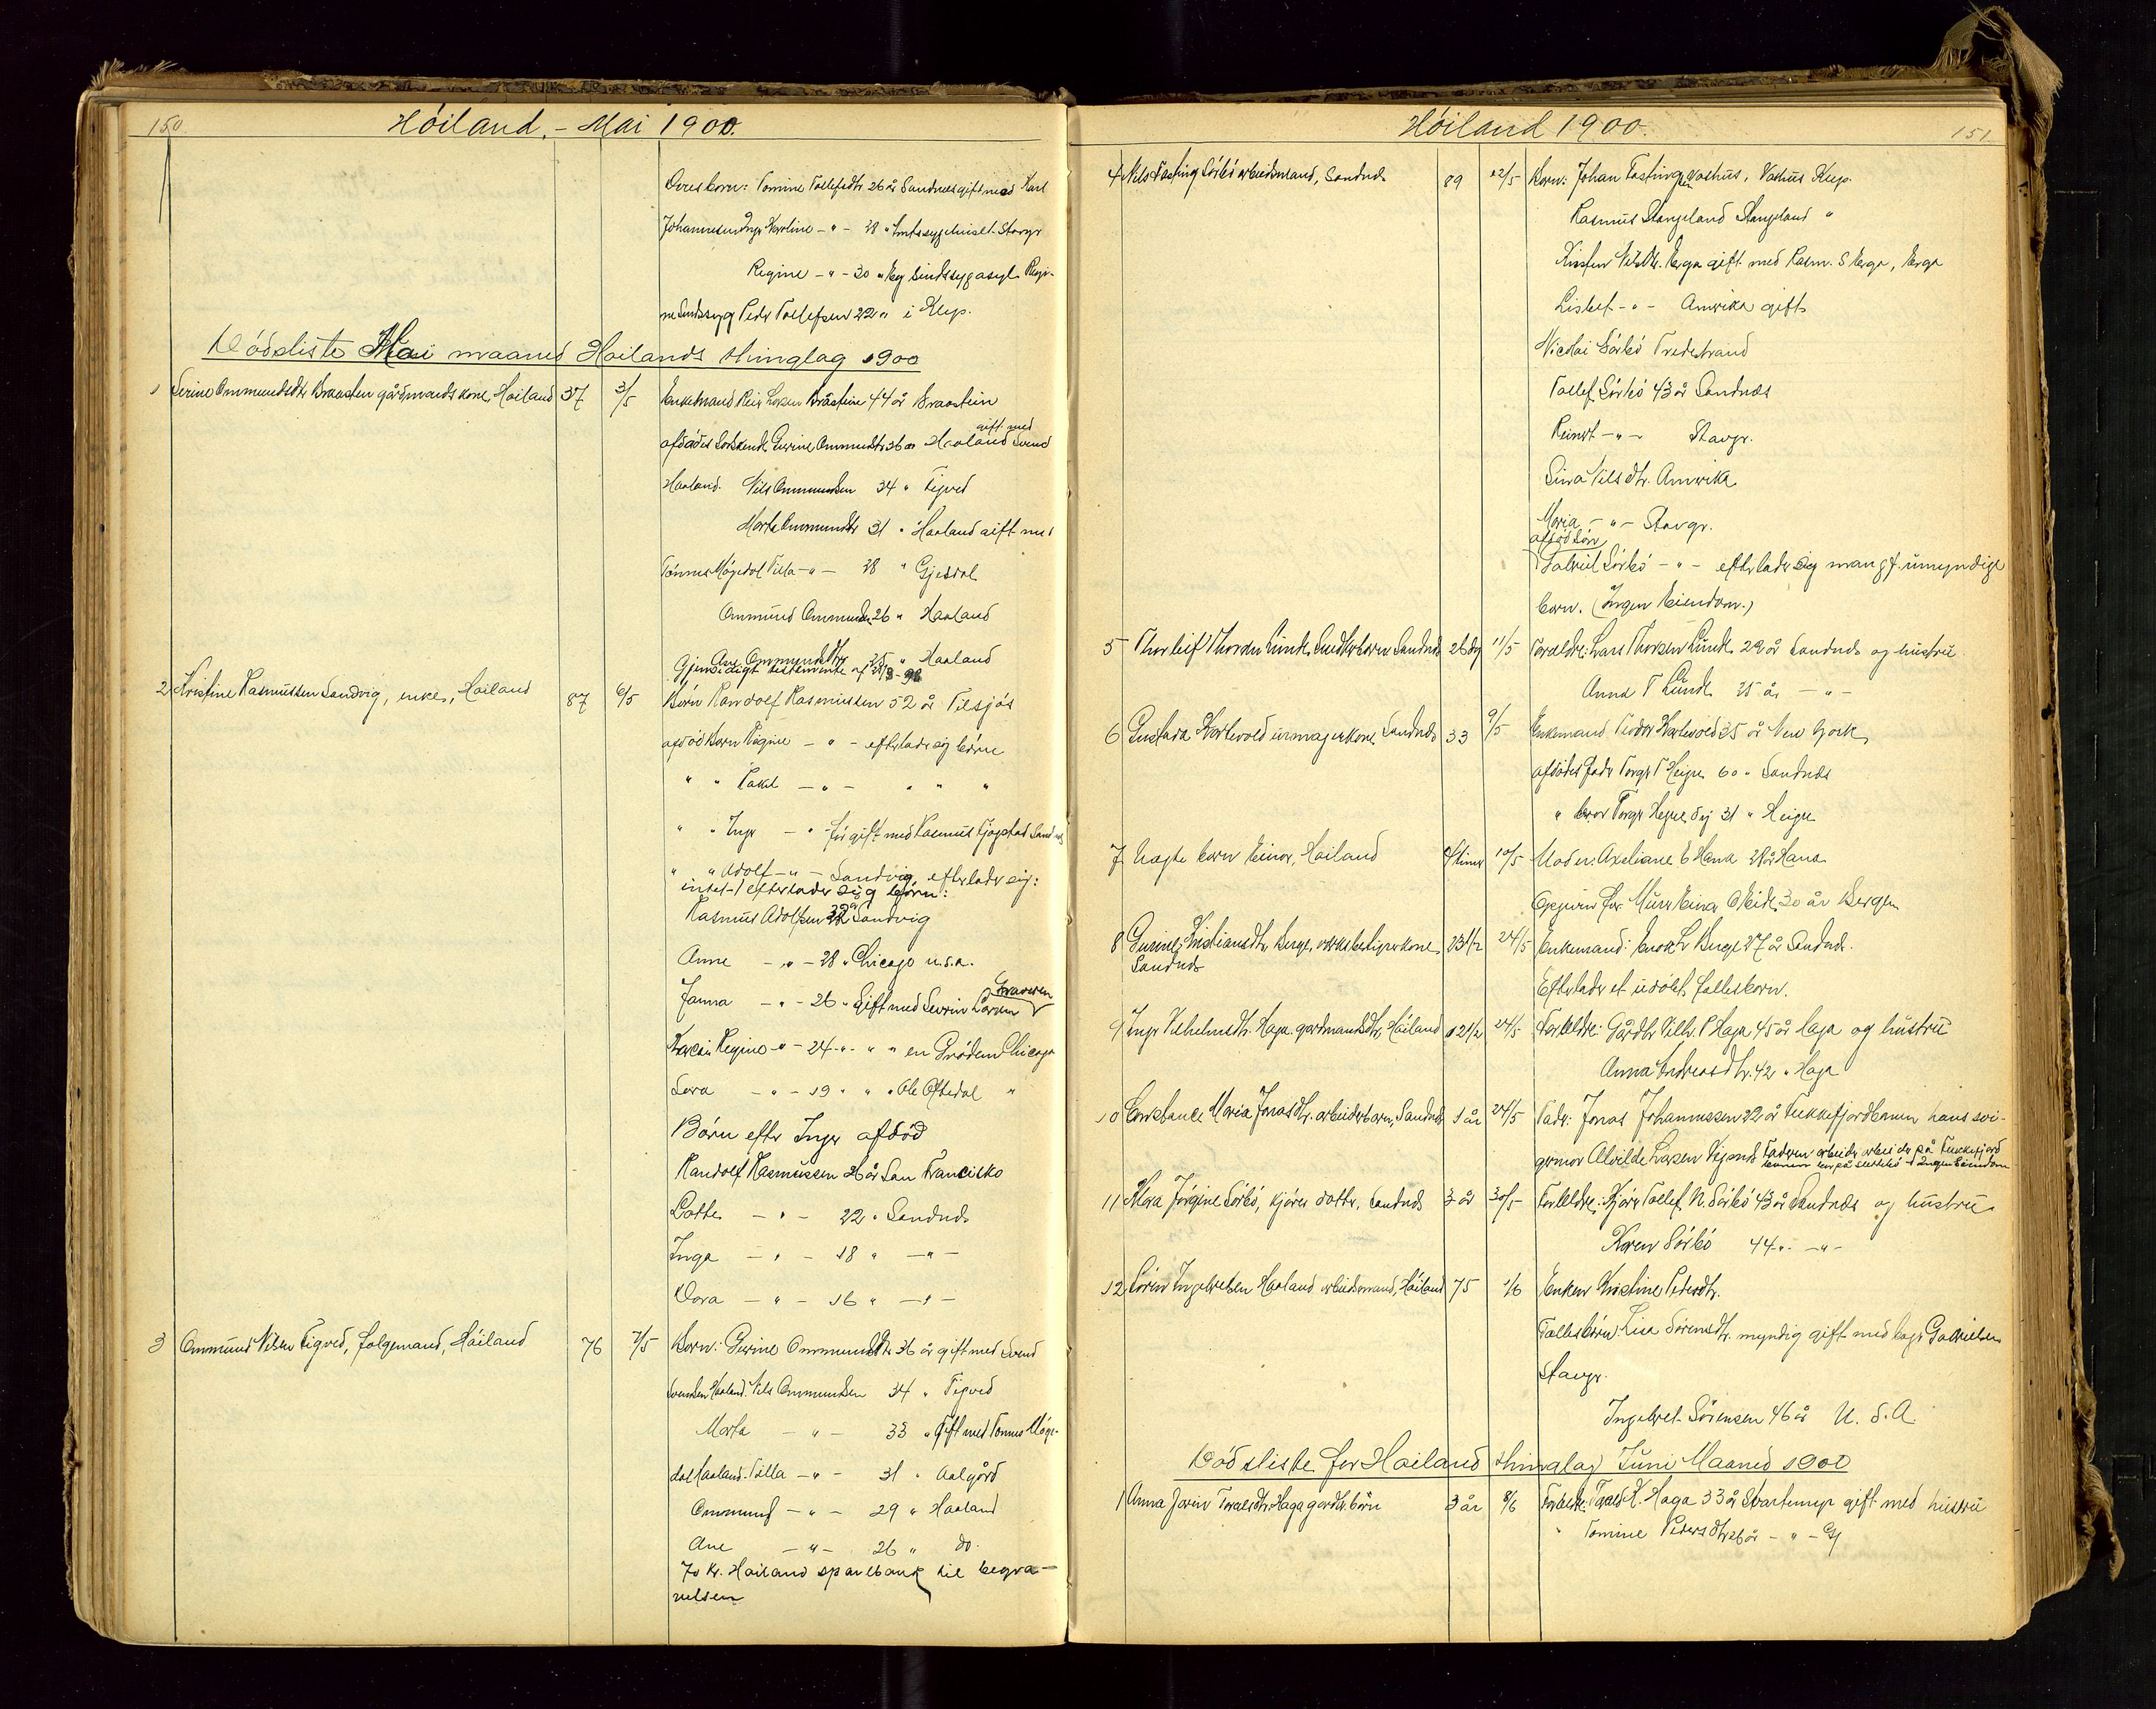 150
Höiland, - Mai 1900.
Overs born: Tomine Tollefsdtr 26 år Sandnes gift med Karl
Johannesen Inger Karoline - " - 28 " Amtssygehuset Stavgr
Regine - " - 30 " Eeg Sindssygasyl Regi-
ne Sindssyg Peder Tollefsen 22 " i Klep.
Dödsliste Mai maaned Höilands thinglag 1900
1 Serine Ommundsdtr Braasten gårdmandskone Höiland 37 3/5 Enkemand Reier Larsen Bråstein 44 år Braastein
afdödes Sødskende Gurine Ommundsdtr 36 år Haaland gift med Svend
Haaland. Nils Ommundsen 34 " Figved
Marta Ommundsdtr 31 " Haaland gift med
Tönnes Mögedal Tilla - " - 28 " Gjesdal
Ommund Ommundsen 26 " Haaland
Ane Ommundsdtr 25 " Haaland
Gjensidigt testamente af 28/8-96
2 Kristine Rasmussen Sandvig, enke, Höiland 87 6/5 Børn Randolf Rasmussen 52 år Tilsjös
afdöd Barn Regine - " - efterlader sig börn
" " Rakel - " - " " "
" " Inger - " - før gift med Rasmus Fjogstad Sandnes
" " Adolf - " - Sandvig efterlader sig:
intet - / efterlader sig børn:
Rasmus Adolfsen 32 år Sandvig
Anne - " - 28 " Chicago U.S.A.
Janna - " - 26 " Gift med Severin Larsen Graveren
Regine - " - 24 - " - " " en Grödem Chicago
Sara - " - 19 " " " Ole Oftedal "
Börn efter Inger afdöd
Randolf Rasmussen 26 år San Francisko
Lotte - " - 22 " Sandnes
Inga - " - 18 " - " -
Dora - " - 16 " - " -
3 Ommund Nilsen Figved, folgemand, Höiland 76 7/5 Born: Gurine Ommundsdtr 36 år gift med Svend
Svendsen Haaland. Nils Ommundsen 34 " Figved
Marta - " - 33 " Gift med Tönnes Möge-
dal Haaland. Tilla - " - 31 " Aalgård
Ommund - " - 29 " Haaland
Ane - " - 26 " do.
70 Kr. Höiland sparebank til begra-
velsen
Höiland 1900.
151
4 Nils Tasting Sörbö arbeidsmand, Sandnes 89 12/5 Born: Johan Tasting Vashus, Vashus Klep.
Rasmus Stangeland Stangeland "
Kirsten Nilsdtr. Erga gift med Rasm. S Erga, Erga
Lisbet - " - Amerika gift
Nicolai Sörbö Tvedestrand
Tollef Sörbö 43 år Sandnes
Reinert - " - Stavgr.
Sina Nilsdtr. Amerika
Maria - " - Stavgr.
afdöd Sön
Gabriel Sörbö - " - efterlader sig mange umyndige
born. (Ingen Eiendom.)
5 Thorleif Thorsen Lunde Snedkerbarn Sandnes 26 dg 11/5 Foraeldre: Lars Thorsen Lunde 29 år Sandnes og hustru
Anna T Lunde 25 år - " -
6 Gustava Hartevold urmagerkone Sandnes 33 9/5 Enkemand Peder Hartevold 35 år New York
afdödes fader Torger T Heigre 60 " Sandnes
" bror Torger Heigre dy 31 " Heigre
7 Uægte barn Einar, Höiland 8 timer 10/5 Moder: Axeliane E Hana 28 år Hana
Opgiven far Murer Einar O Eide 30 år Bergen
8 Gurine Kristiansdtr. Berge, værksbestyrerkone 23 1/2 24/5 Enkemand: Enok L Berge 27 år Sandnes.
Sandnes
Efterlader et udöbt fallesbarn.
9 Inger Vilhelmsdtr. Haga gardmandsdtr, Höiland 12 1/2 24/5 Forældre: Gårdbr Vilh. P Haga 45 år Haga og hustru
Anna Andreasdtr. 42 " Haga
10 Constance Maria Jonasdtr. arbeiderbarn, Sandnes 1 år 24/5 Fader: Jonas Johannessen 22 år Flekkefjordbanen hans svi-
germor Alvilde Larsen Faderen arbeider på Flekkefjord
banen Ingen Eiendom
11 Maga Jörgine Sörbö, kjörer datter, Sandnes 3 år 30/5 Forældre: Kjörer Tollef N. Sörbö 43 år Sandnes og hustru
Karen Sörbö 44 - " - - " -
12 Sören Ingebretsen Haaland arbeidsmand, Höiland 75 1/6 Enken Kristine Pedersdtr.
Fallesbörn: Lisa Sörensdtr. myndig gift med bager Gabrielsen
Stavgr.
Ingebret Sörensen 46 år U. S. A.
Dödsliste for Höiland thinglag Juni Maaned 1900
1 Anna Jorine Toraldsdtr. Haga gardbr. börn 3 år 8/6 Forældre: Torald K. Haga 33 år Svartemyr gift med hustru
Tomine Pedersdtr 26 år - " -